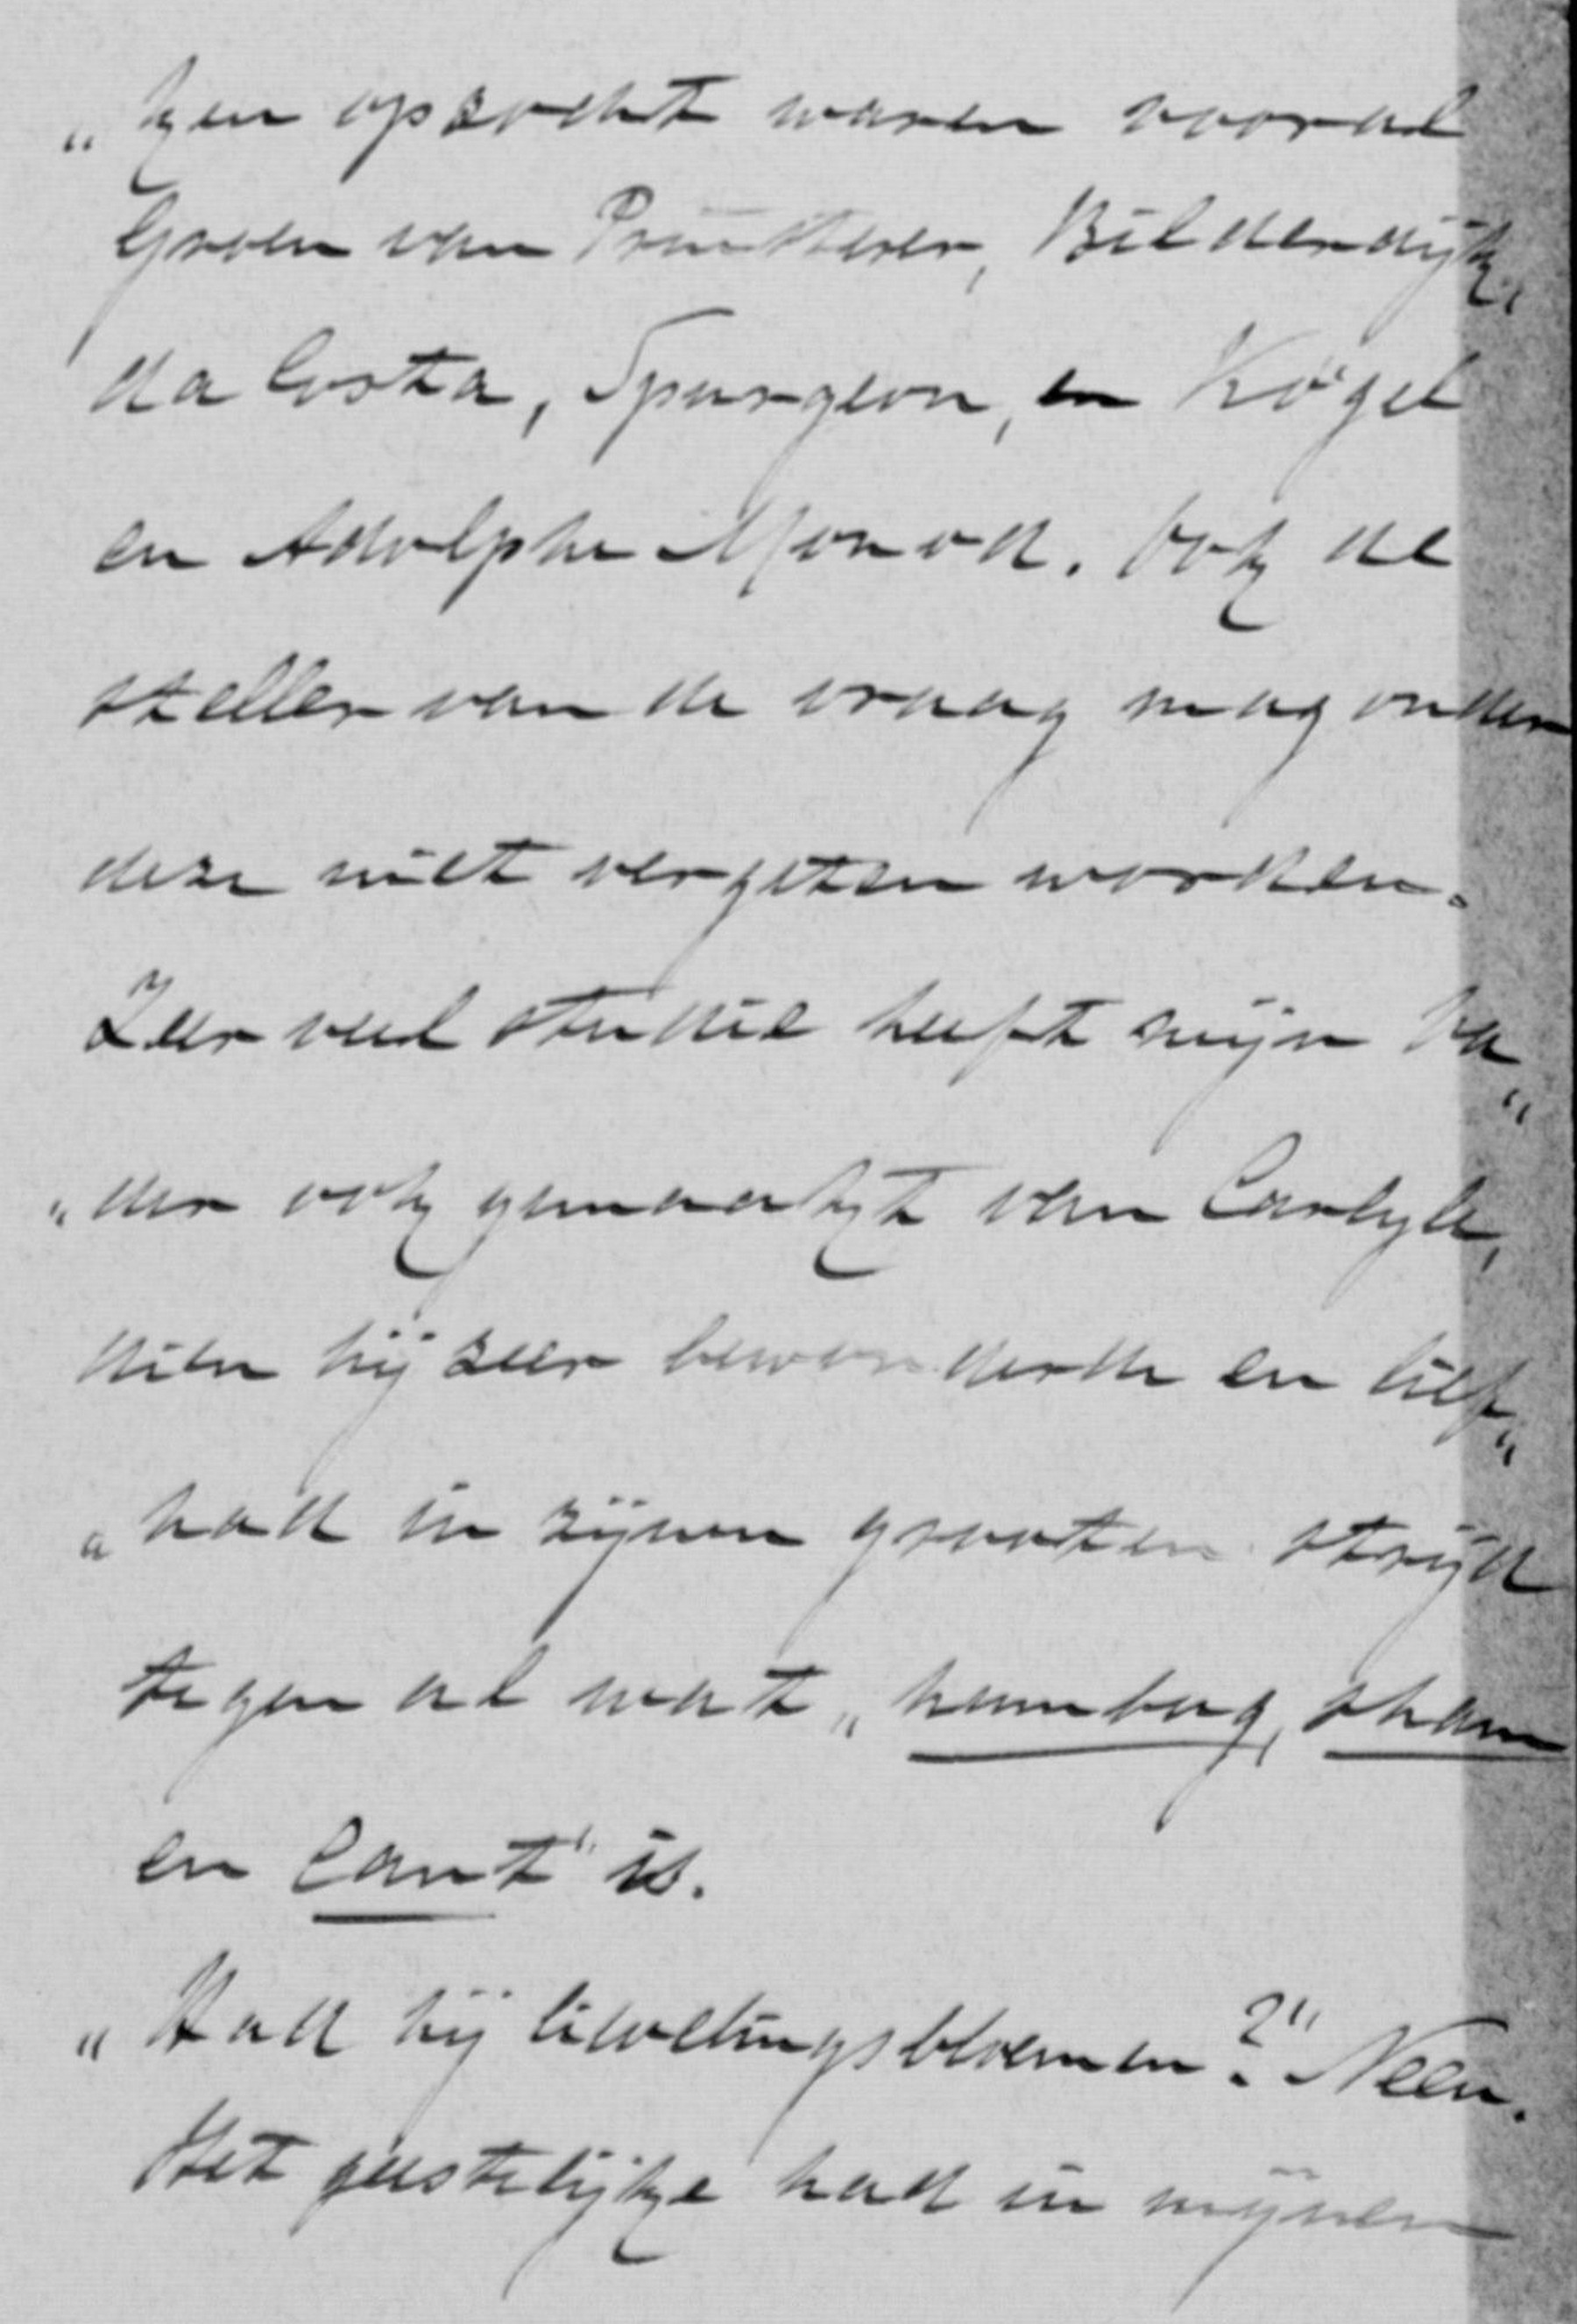 „ken opzocht waren vooral
Groen van Prinsterer, Bilderdijk,
da Costa, Spurgeon, en Kögel
en Adolphe Monod. Ook de
steller van de vraag mag onder
deze niet vergeten worden.
Zeer veel studie heeft mijn Va„
„der ook gemaakt van Carlyle,
dien hij zeer bewonderde en lief„
„had in zijnen grooten strijd
tegen al wat „humbug, sham
en cant" is.
„Had hij lievelingsbloemen?" Neen.
Het geestelijke had in mijnen